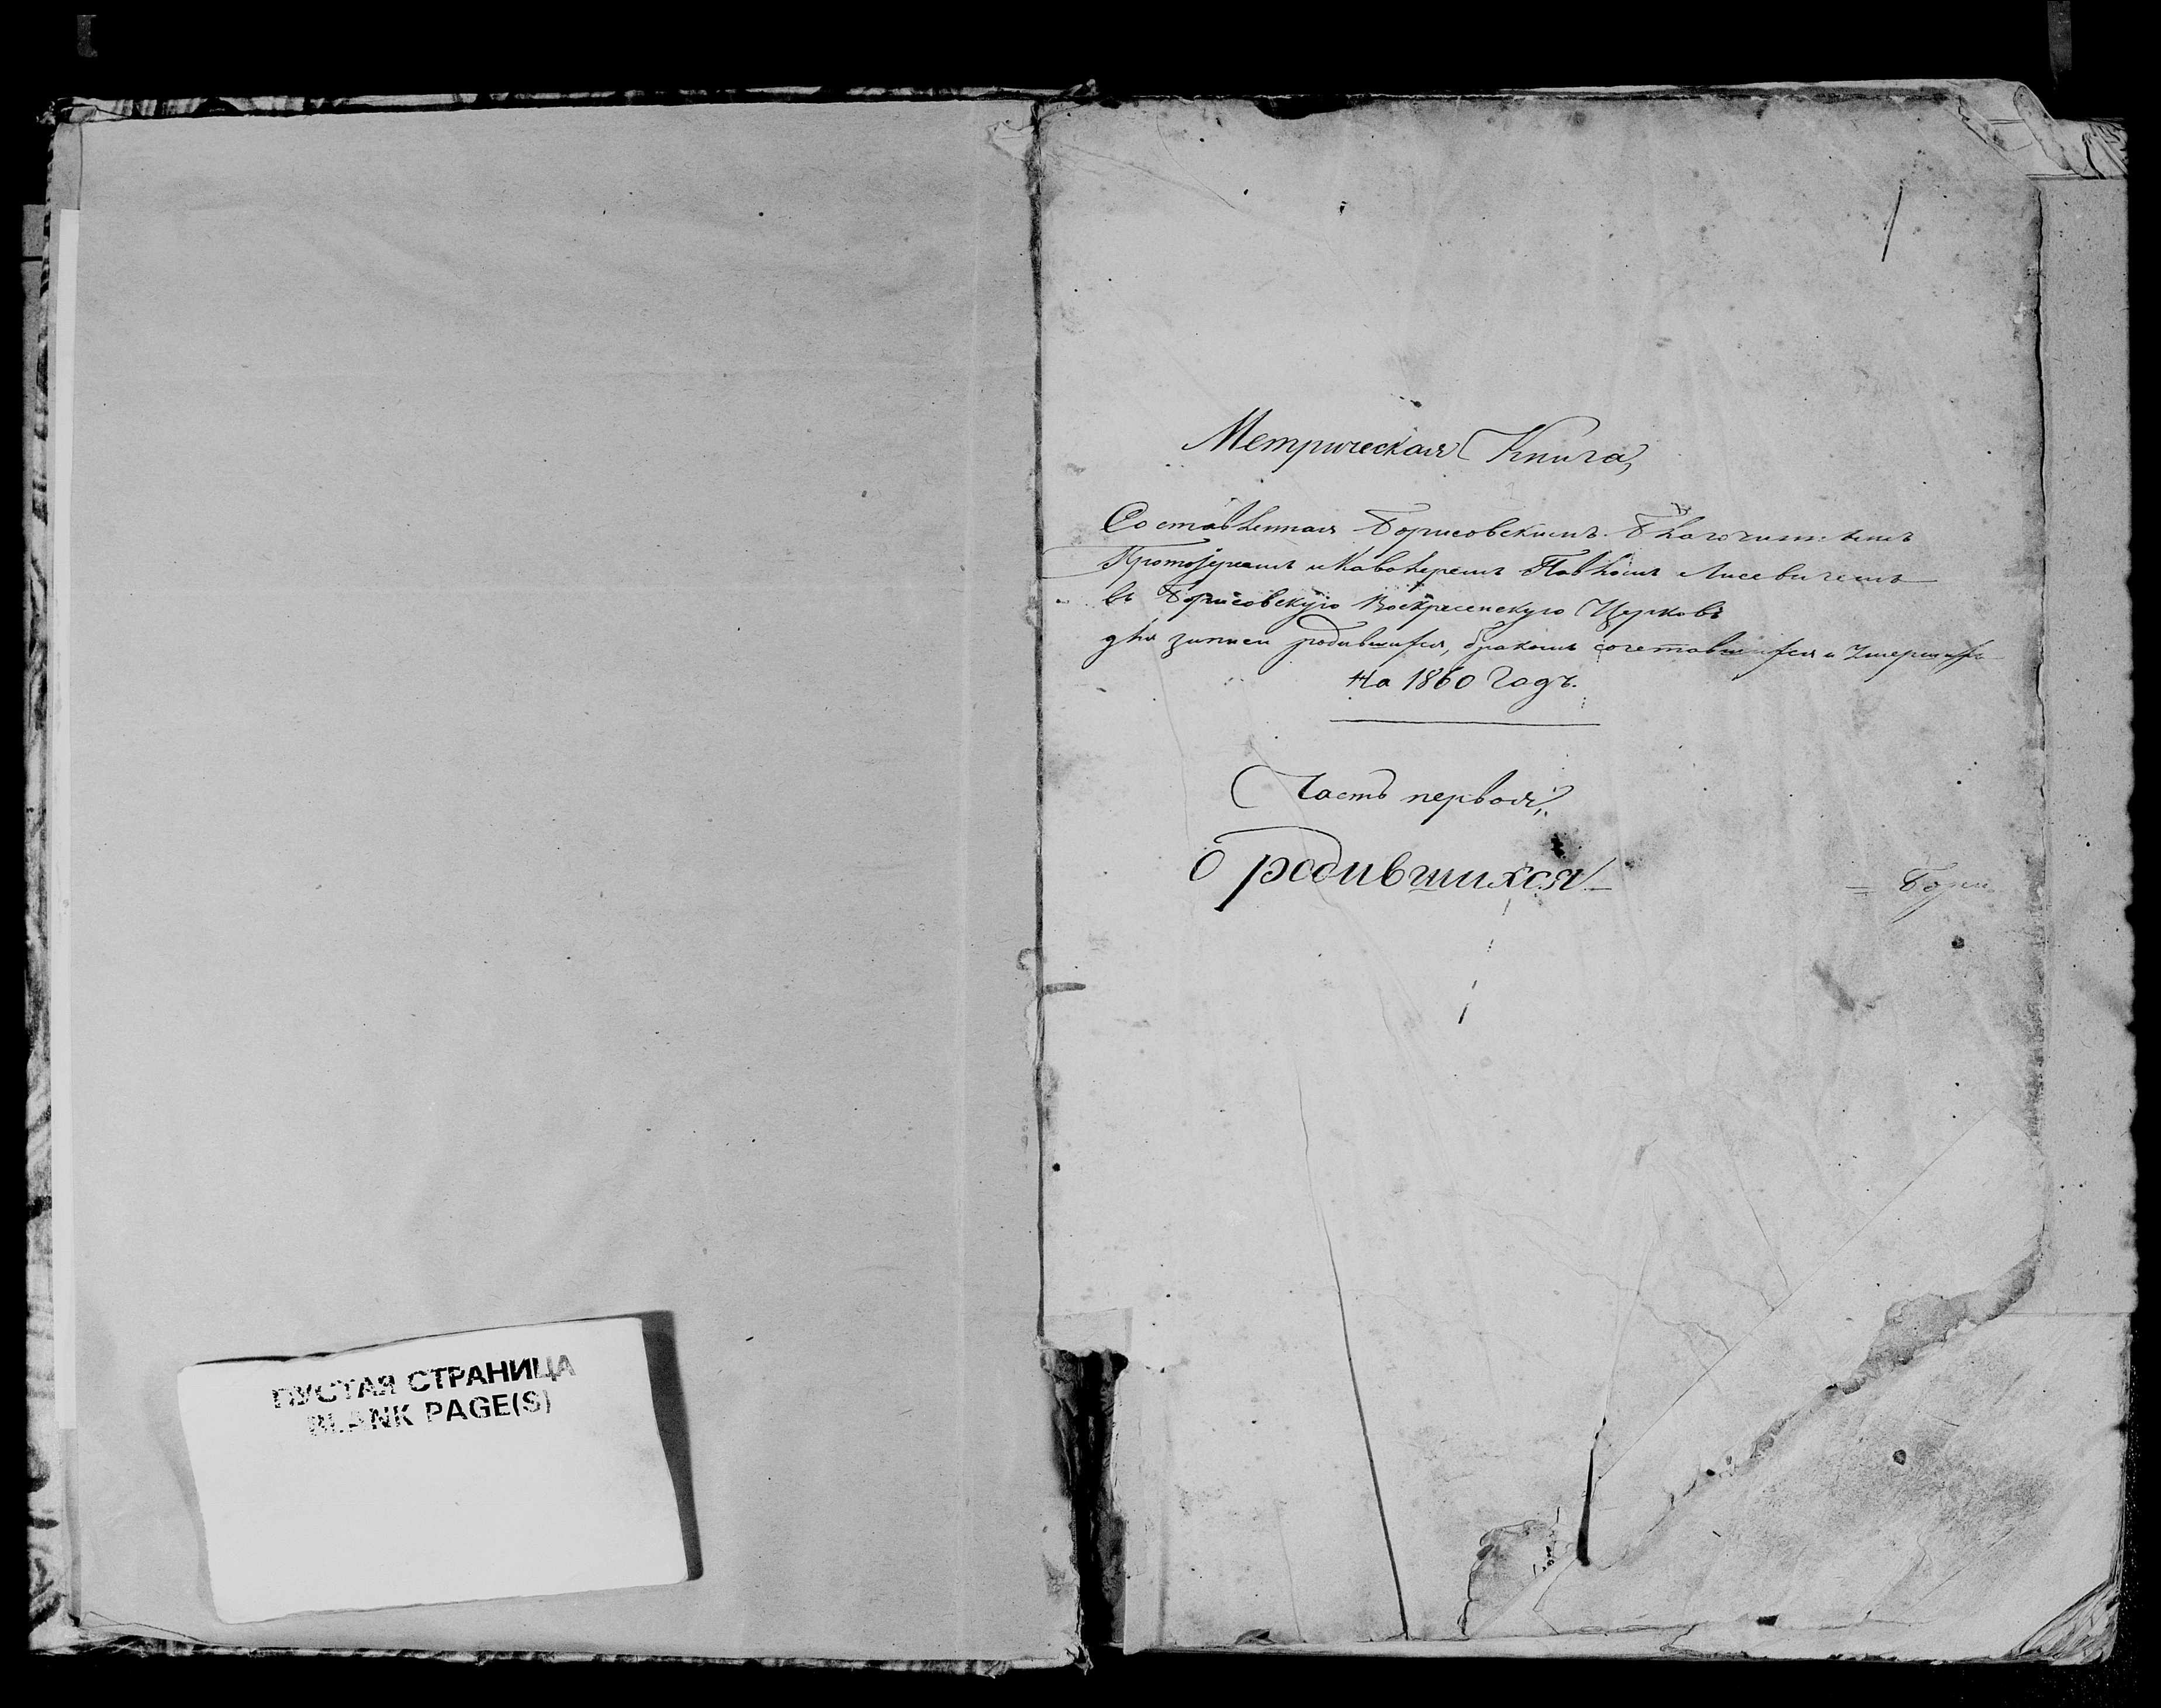 ПУСТАЯ СТРАНИЦА
BLANK PAGE(S)
Метрическая Книга,
Составленная Борисовскимъ Благочиннымъ
Протоіереемъ и Кавалеромъ Павломъ Лисевичемъ
въ Борисовскую Воскресенскую Церковь
для записи родившихся, бракомъ сочетавшихся и Умершихъ
На 1860 Годъ.
Часть первая,
О родившихся